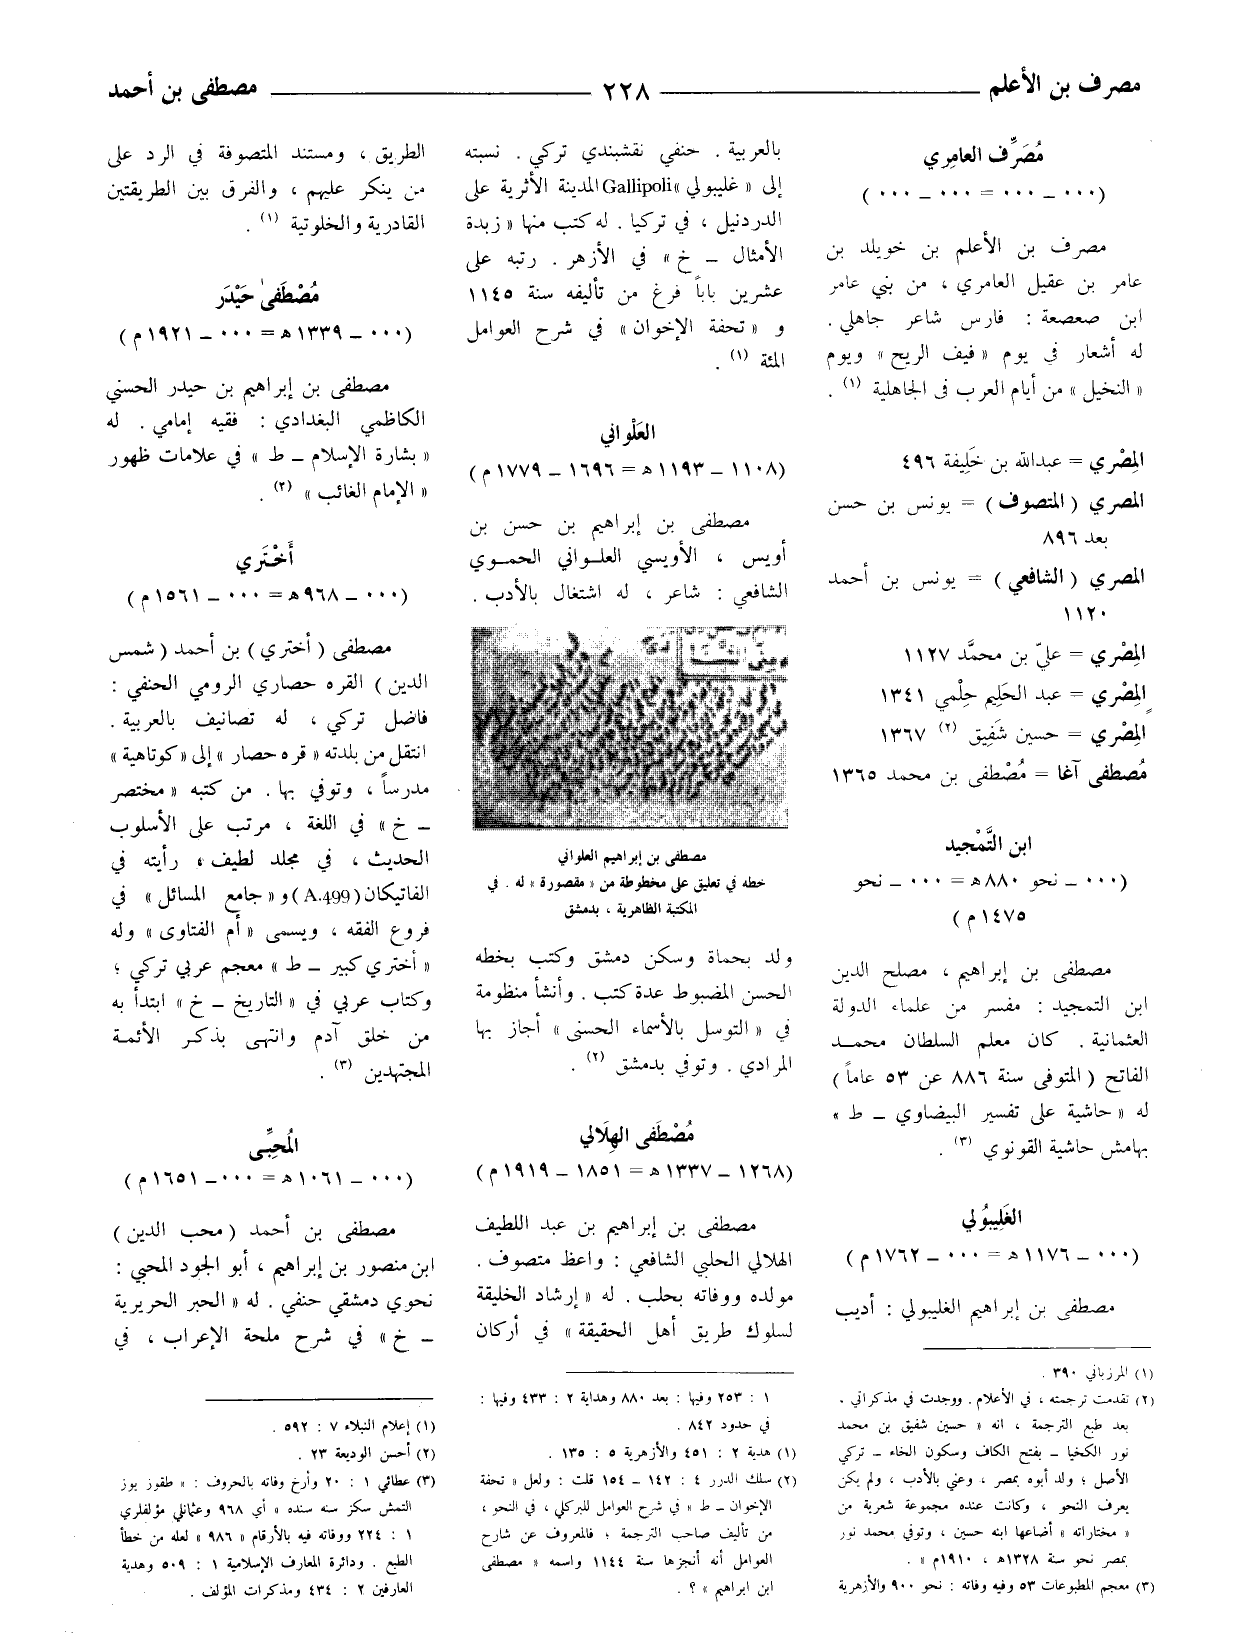 مصرف بن الأعلم ٢٢٨ مصطفى بن أحمد
مُصَرِّف العامِري
(٠٠٠ ــ ٠٠٠ = ٠٠٠ ــ ٠٠٠)
مصرف بن الأعلم بن خويلد بن
عامر بن عقيل العامري ، من بني عامر
ابن صعصعة : فارس شاعر جاهلي .
له أشعار في يوم « فيف الريح » ويوم
« النخيل » من أيام العرب فى الجاهلية (١) .
المِصْري = عبدالله بن خَلِيفة ٤٩٦
المصري ( المتصوف ) = يونس بن حسن
بعد ٨٩٦
المصري ( الشافعي ) = يونس بن أحمد
١١٢٠
المِصْري = عليّ بن محمَّد ١١٢٧
المِصْري = عبد الحَلِيم حِلْمي ١٣٤١
المِصْري = حسين شَفِيق (٢) ١٣٦٧
مُصطفى آغا = مُصْطفى بن محمد ١٣٦٥
ابن التَّمْجيد
(٠٠٠ ــ نحو ٨٨٠ هـ = ٠٠٠ ــ نحو
١٤٧٥ م)
مصطفى بن إبراهيم ، مصلح الدين
ابن التمجيد : مفسر من علماء الدولة
العثمانية . كان معلم السلطان محمد
الفاتح ( المتوفى سنة ٨٨٦ عن ٥٣ عاماً )
له « حاشية على تفسير البيضاوي ــ ط »
بهامش حاشية القونوي (٣) .
الغَلِيبُولي
(٠٠٠ ــ ١١٧٦ هـ = ٠٠٠ ــ ١٧٦٢ م)
مصطفى بن إبراهيم الغليبولي : أديب
(١) المرزباني ٣٩٠ .
(٢) تقدمت ترجمته ، في الأعلام . ووجدت في مذكراتي .
بعد طبع الترجمة ، انه « حسين شفيق بن محمد
نور الكخيا ــ بفتح الكاف وسكون الخاء ــ تركي
الأصل ؛ ولد أبوه بمصر ، وعني بالأدب ، ولم يكن
يعرف النحو ، وكانت عنده مجموعة شعرية من
« مختاراته » أضاعها ابنه حسين ، وتوفي محمد نور
بمصر نحو سنة ١٣٢٨هـ ، ١٩١٠م » .
(٣) معجم المطبوعات ٥٣ وفيه وفاته : نحو ٩٠٠ والأزهرية
بالعربية . حنفي نقشبندي تركي . نسبته
إلى « غليبولي » Gallipoli المدينة الأثرية على
الدردنيل ، في تركيا . له كتب منها « زبدة
الأمثال ــ خ » في الأزهر . رتبه على
عشرين باباً فرغ من تأليفه سنة ١١٤٥
و « تحفة الإخوان » في شرح العوامل
المئة (١) .
العَلْواني
(١١٠٨ ــ ١١٩٣ هـ = ١٦٩٦ ــ ١٧٧٩ م)
مصطفى بن إبراهيم بن حسن بن
أويس ، الأويسي العلواني الحموي
الشافعي : شاعر ، له اشتغال بالأدب .
مصطفى بن إبراهيم العلواني
خطه في تعليق على مخطوطة من « مقصورة » له . في
المكتبة الظاهرية ، بدمشق
ولد بحماة وسكن دمشق وكتب بخطه
الحسن المضبوط عدة كتب . وأنشأ منظومة
في « التوسل بالأسماء الحسنى » أجاز بها
المرادي . وتوفي بدمشق (٢) .
مُصْطَفى الهِلَالي
(١٢٦٨ ــ ١٣٣٧ هـ = ١٨٥١ ــ ١٩١٩ م)
مصطفى بن إبراهيم بن عبد اللطيف
الهلالي الحلبي الشافعي : واعظ متصوف .
مولده ووفاته بحلب . له « إرشاد الخليقة
لسلوك طريق أهل الحقيقة » في أركان
١ : ٢٥٣ وفيها : بعد ٨٨٠ وهداية ٢ : ٤٣٣ وفيها :
في حدود ٨٤٢ .
(١) هدية ٢ : ٤٥١ والأزهرية ٥ : ١٣٥ .
(٢) سلك الدرر ٤ : ١٤٢ ــ ١٥٤ قلت : ولعل « تحفة
الإخوان ــ ط » في شرح العوامل للبركلي ، في النحو ،
من تأليف صاحب الترجمة ؛ فالمعروف عن شارح
العوامل أنه أنجزها سنة ١١٤٤ واسمه « مصطفى
ابن ابراهيم » ؟ .
الطريق ، ومستند المتصوفة في الرد على
من ينكر عليهم ، والفرق بين الطريقتين
القادرية والخلوتية (١) .
مُصْطَفىٰ حَيْدَر
(٠٠٠ ــ ١٣٣٩ هـ = ٠٠٠ ــ ١٩٢١ م)
مصطفى بن إبراهيم بن حيدر الحسني
الكاظمي البغدادي : فقيه إمامي . له
« بشارة الإسلام ــ ط » في علامات ظهور
« الإمام الغائب » (٢) .
أَخْتَري
(٠٠٠ ــ ٩٦٨ هـ = ٠٠٠ ــ ١٥٦١ م)
مصطفى ( أختري ) بن أحمد ( شمس
الدين ) القره حصاري الرومي الحنفي :
فاضل تركي ، له تصانيف بالعربية .
انتقل من بلدته « قره حصار » إلى « كوتاهية »
مدرساً ، وتوفي بها . من كتبه « مختصر
ــ خ » في اللغة ، مرتب على الأسلوب
الحديث ، في مجلد لطيف ، رأيته في
الفاتيكان (A.499) و « جامع المسائل » في
فروع الفقه ، ويسمى « أم الفتاوى » وله
« أختري كبير ــ ط » معجم عربي تركي ؛
وكتاب عربي في « التاريخ ــ خ » ابتدأ به
من خلق آدم وانتهى بذكر الأئمة
المجتهدين (٣) .
المُحِبِّى
(٠٠٠ ــ ١٠٦١ هـ = ٠٠٠ ــ ١٦٥١ م)
مصطفى بن أحمد ( محب الدين )
ابن منصور بن إبراهيم ، أبو الجود المحبي :
نحوي دمشقي حنفي . له « الحبر الحريرية
ــ خ » في شرح ملحة الإعراب ، في
(١) إعلام النبلاء ٧ : ٥٩٢ .
(٢) أحسن الوديعة ٢٣ .
(٣) عطائي ١ : ٢٠ وأرخ وفاته بالحروف : « طقوز يوز
التمش سكز سنه سنده » أي ٩٦٨ وعثمانلي مؤلفلري
١ : ٢٢٤ ووفاته فيه بالأرقام « ٩٨٦ » لعله من خطأ
الطبع . ودائرة المعارف الإسلامية ١ : ٥٠٩ وهدية
العارفين ٢ : ٤٣٤ ومذكرات المؤلف .